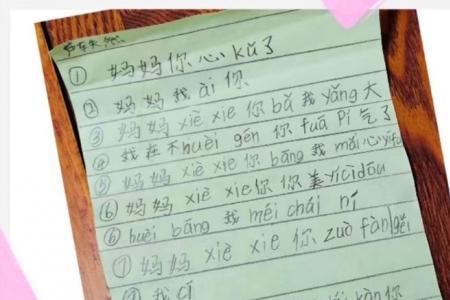 ① 妈妈你心kǔ了
② 妈妈我ài你
③ 妈妈xiè xie你bǎ我yǎng大
④ 我在不huèi gén你fuā Pí气了
⑤ 妈妈xiè xie你bāng我mǎi心yīfu
⑥ 妈妈xiè xie你你美yícìdōu
⑥ huèi bāng我méi chái ní
⑦ 妈妈xiè xie你zuò fàn gěi